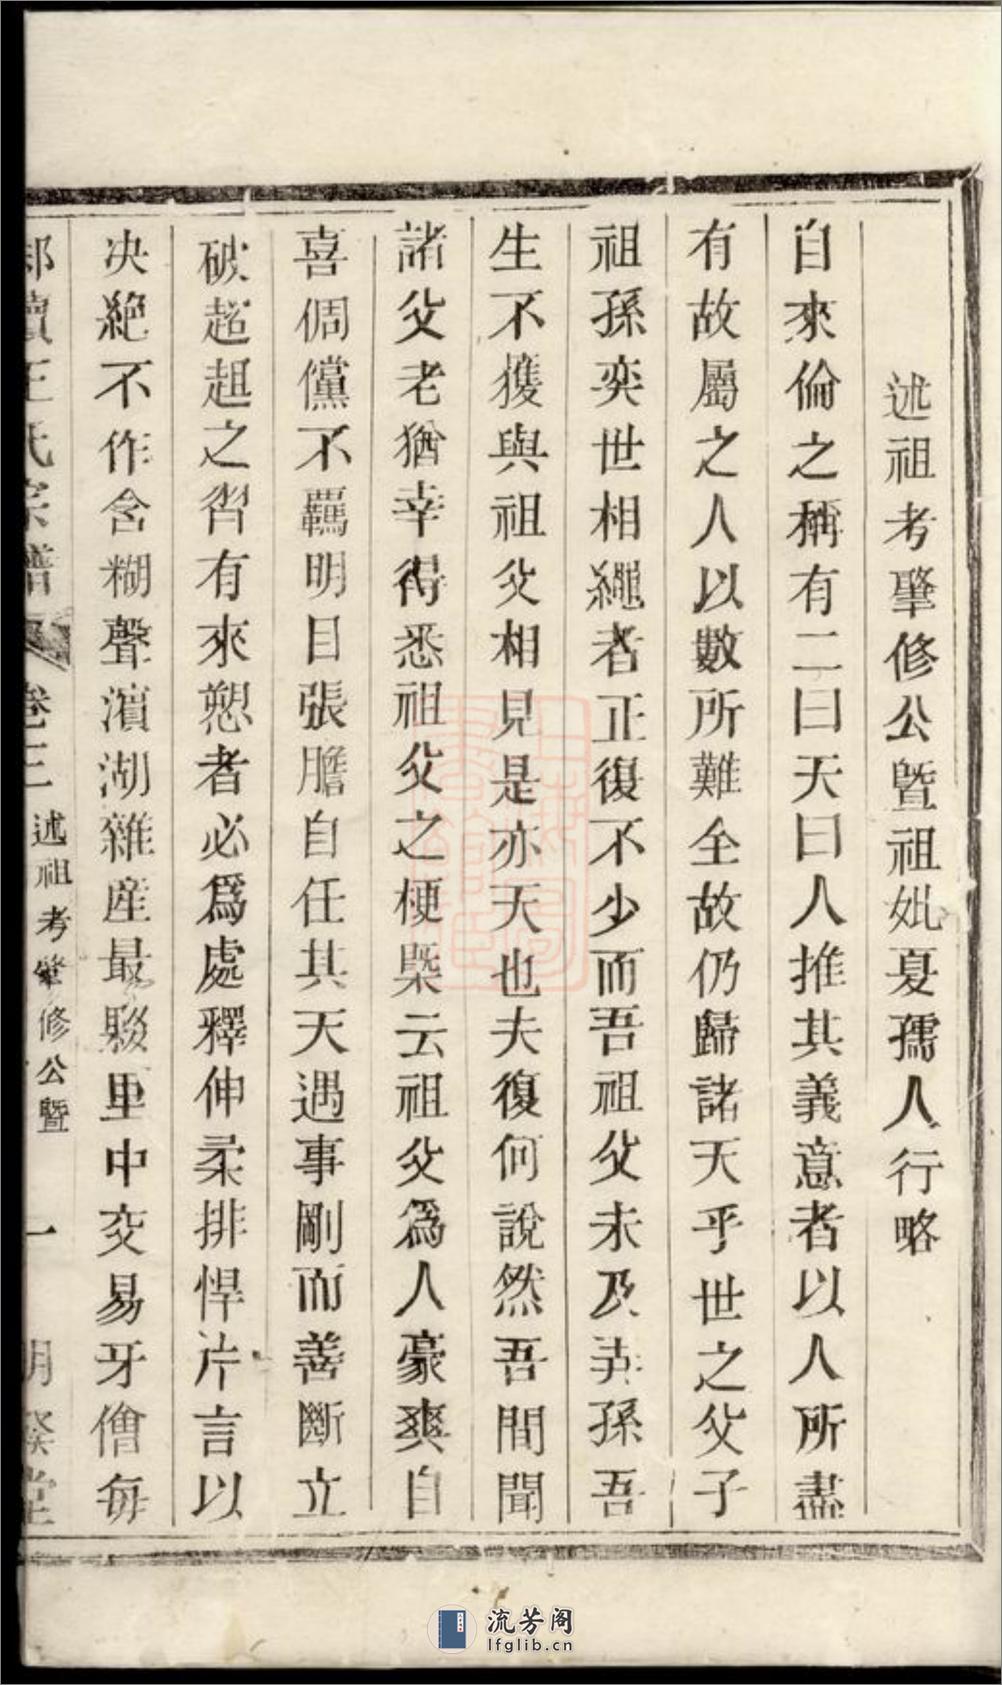 述祖考肇修公暨祖妣夏孺人行略
自來倫之稱有二曰天曰人推其義意者以人所盡
有故屬之人以數所難全故仍歸諸天乎世之父子
祖孫奕世相繩者正復不少而吾祖父未及弄孫吾
生不獲與祖父相見是亦天也夫復何說然吾間聞
諸父老猶幸得悉祖父之梗槩云祖父爲人豪爽自
喜倜儻不羈明目張膽自任其天遇事剛而善斷立
破趦趄之習有來愬者必爲處釋伸柔排悍片言以
决絶不作含糊聲濱湖雜産最賤里中交易牙儈每
王氏宗譜 卷三 述祖考肇修公暨 一 堂
流芳阁
lfglib.cn